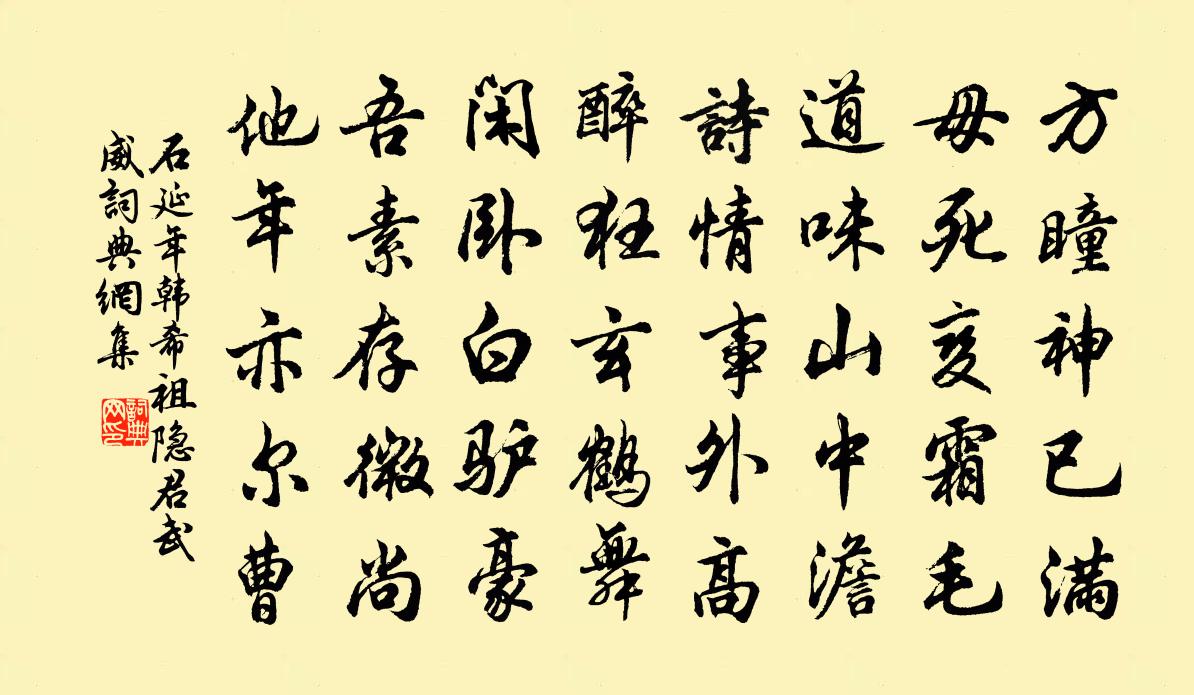 方瞳神已满
毋死变霜毛
道味山中澹
詩情事外高
醉狂玄鹤舞
闲卧白驴豪
吾素存微尚
他年亦尔曹
石延年韩希祖隐君武
威詞典網集
詞典
网印